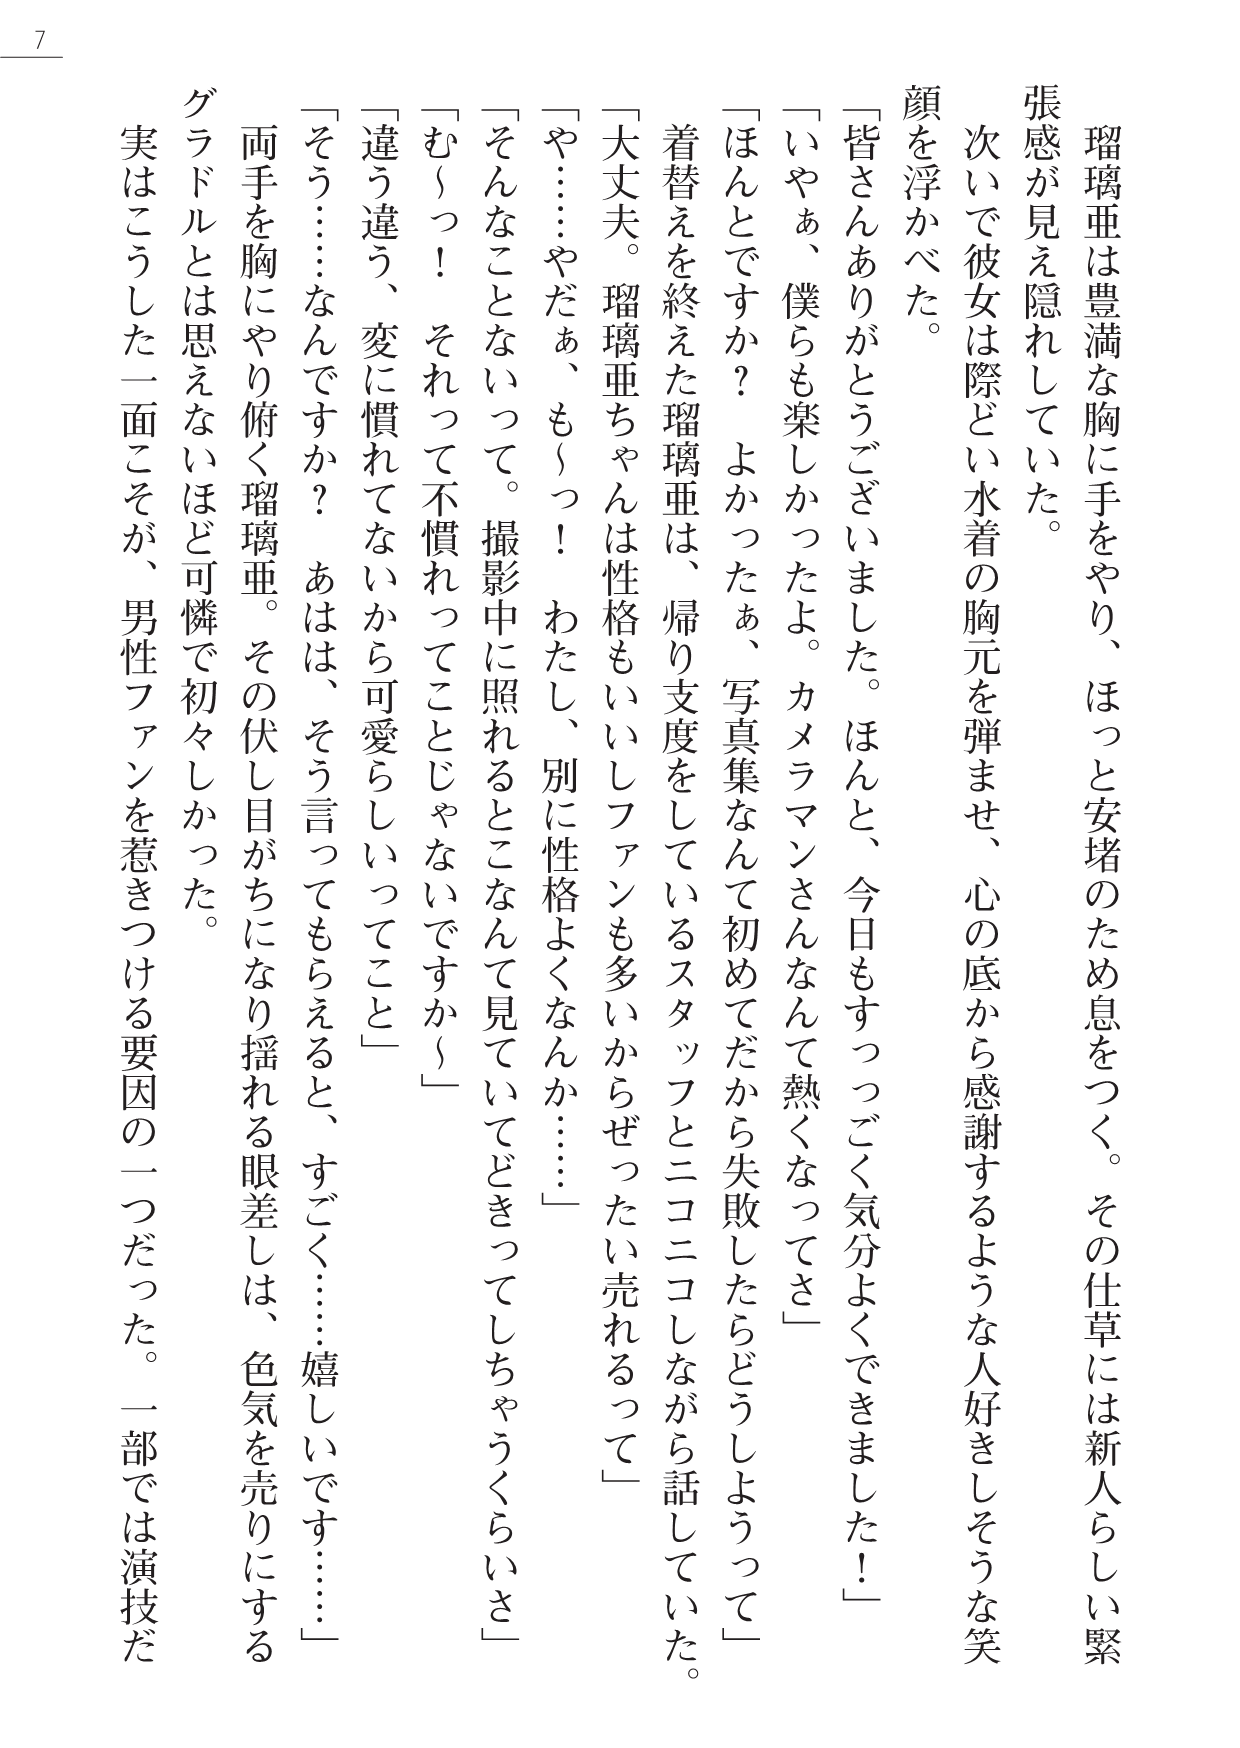 7
　瑠璃亜は豊満な胸に手をやり、ほっと安堵のため息をつく。その仕草には新人らしい緊
張感が見え隠れしていた。
　次いで彼女は際どい水着の胸元を弾ませ、心の底から感謝するような人好きしそうな笑
顔を浮かべた。
「皆さんありがとうございました。ほんと、今日もすっっごく気分よくできました！」
「いやぁ、僕らも楽しかったよ。カメラマンさんなんて熱くなってさ」
「ほんとですか？　よかったぁ、写真集なんて初めてだから失敗したらどうしようって」
　着替えを終えた瑠璃亜は、帰り支度をしているスタッフとニコニコしながら話していた。
「大丈夫。瑠璃亜ちゃんは性格もいいしファンも多いからぜったい売れるって」
「や……やだぁ、も～っ！　わたし、別に性格よくなんか……」
「そんなことないって。撮影中に照れるとこなんて見ていてどきってしちゃうくらいさ」
「む～っ！　それって不慣れってことじゃないですか～」
「違う違う、変に慣れてないから可愛らしいってこと」
「そう……なんですか？　あはは、そう言ってもらえると、すごく……嬉しいです……」
　両手を胸にやり俯く瑠璃亜。その伏し目がちになり揺れる眼差しは、色気を売りにする
グラドルとは思えないほど可憐で初々しかった。
　実はこうした一面こそが、男性ファンを惹きつける要因の一つだった。一部では演技だ